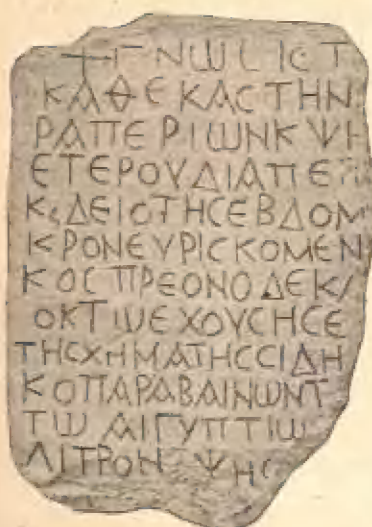 +ΓΝΩCΙCΤ
ΚΑΘΕΚΑCΤΗΝ
ΡΑΠΕΡΙΩΝΚΨΗ
ΕΤΕΡΟΥΔΙΑΠΕ
ΚςΔΕΙΟΤΗCΕΒΔΟΜ
ΚΡΟΝΕΥΡΙCΚΟΜΕΝ
ΚΟCΠΡΕΟΝΟΔΕΚ/
ΟΚΤΙΨΕΧΟΥCΗCΕ
ΤΗCΧΗΜΑΤΗCCΙΔΗ
ΚΟΠΑΡΑΒΑΙΝΩΝΤ
ΤΩΑΙΓΥΠΤΙΩ
ΛΙΤΡΟΝ ΨΗC